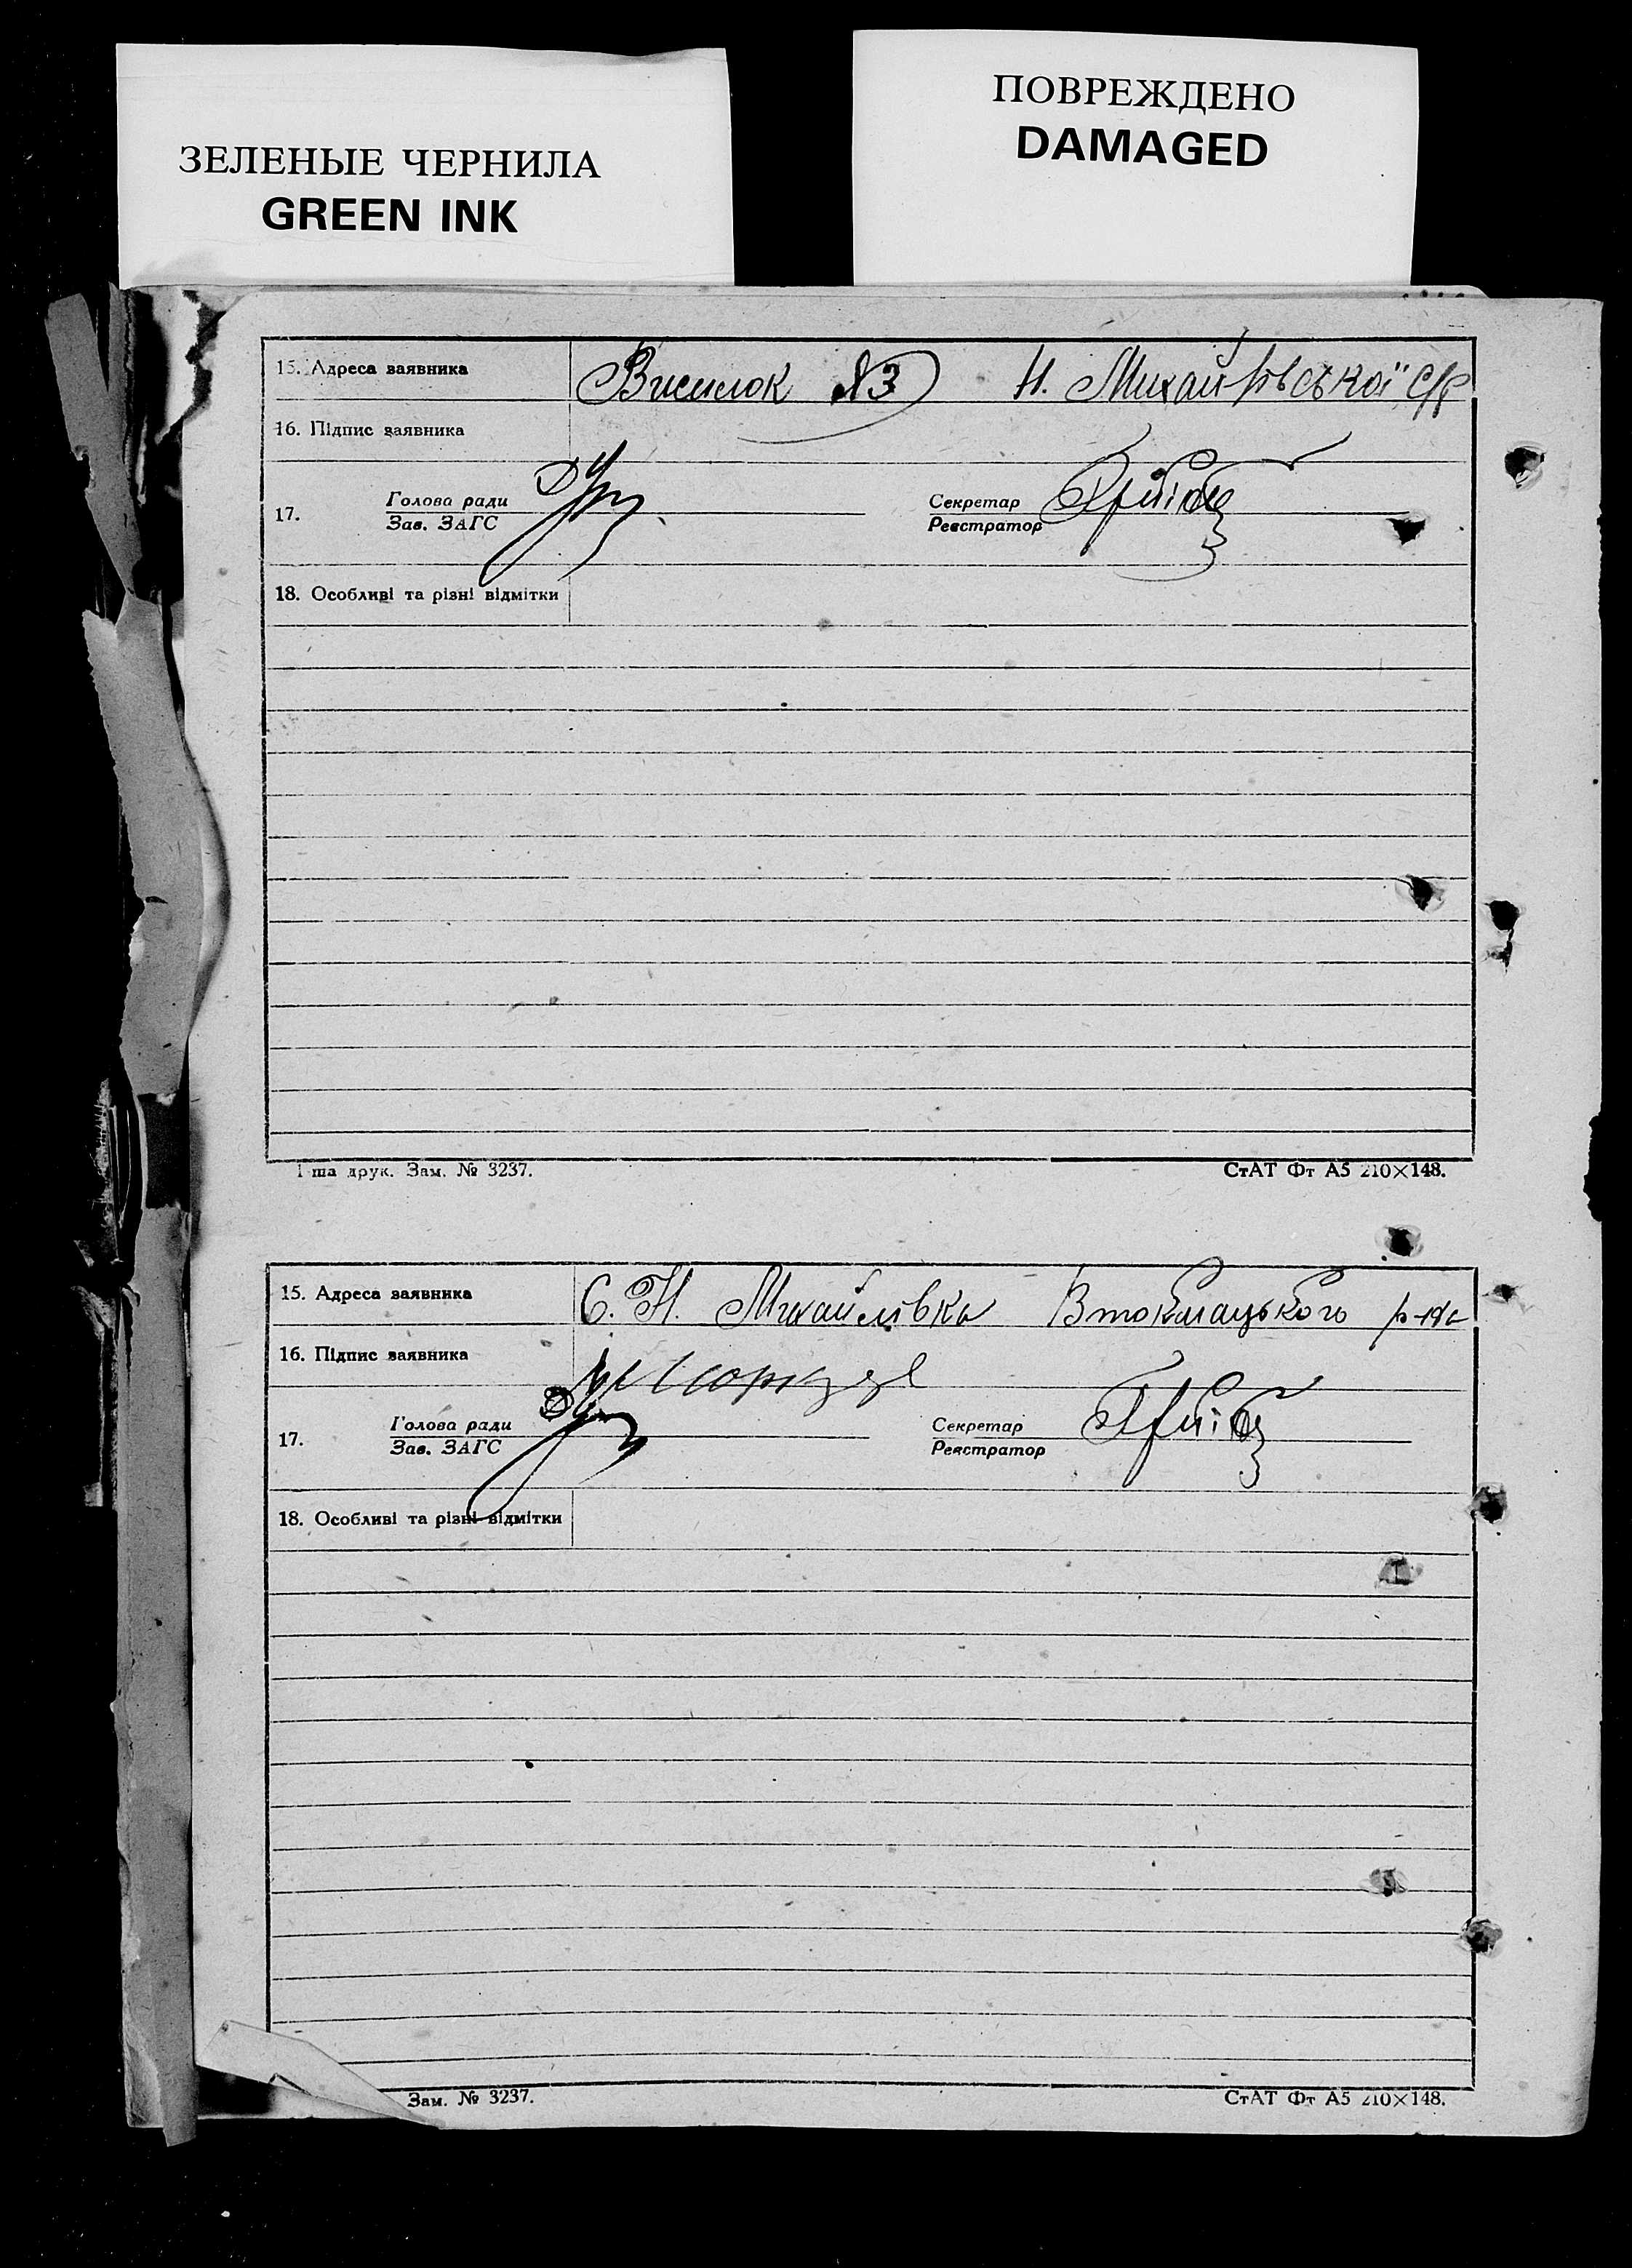 ЗЕЛЕНЫЕ ЧЕРНИЛА
GREEN INK
ПОВРЕЖДЕНО
DAMAGED
15. Адреса заявника Виселок №3 Н. Михайлівської с/р
16. Підпис заявника
17. Голова ради Секретар
Зав. ЗАГС Реєстратор
18. Особливі та різні відмітки
1-ша друк. Зам. № 3237. СтАТ Фт А5 210×148.
15. Адреса заявника С. Н. Михайлівка Втокмацького р-на
16. Підпис заявника
17. Голова ради Секретар
Зав. ЗАГС Реєстратор
18. Особливі та різні відмітки
Зам. № 3237. СтАТ Фт А5 210×148.